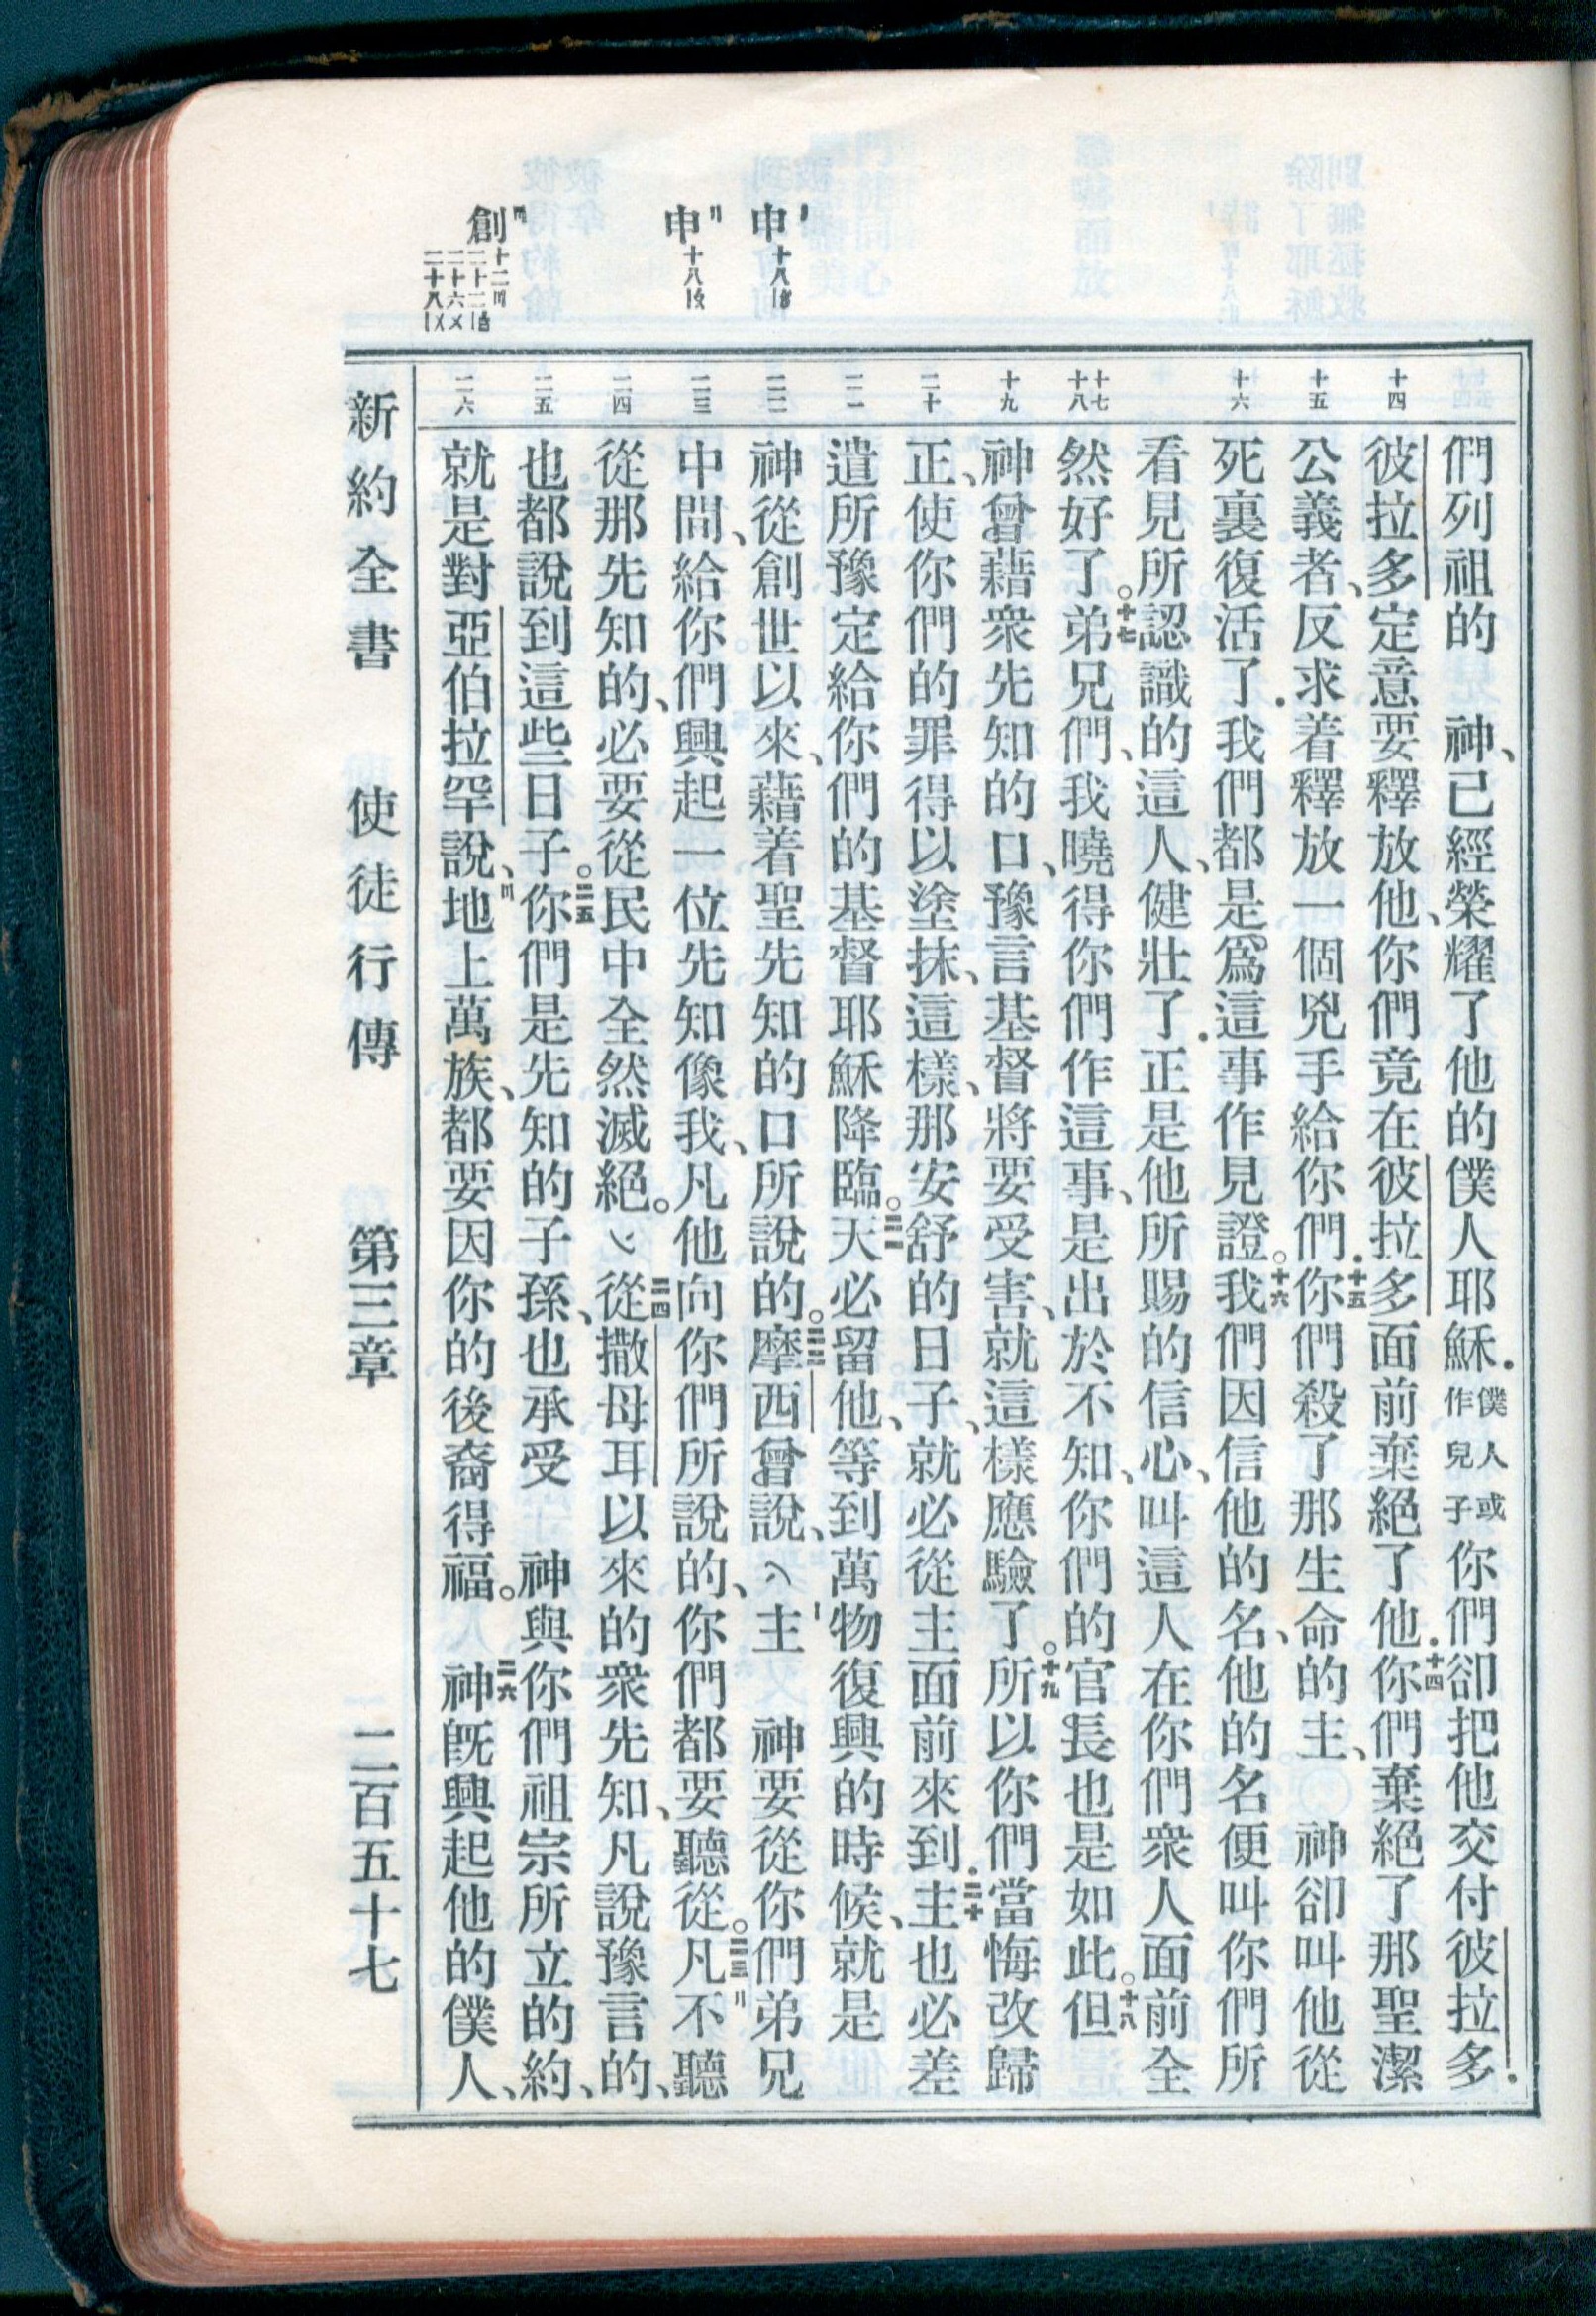 申十八15
申十八19
創十二3
二十二18
二十六4
二十八14
十四
十五
十六
十七
十八
十九
二十
二一
二二
二三
二四
二五
二六
們列祖的 神、已經榮耀了他的僕人耶穌．僕人或作兒子你們卻把他交付彼拉多．
彼拉多定意要釋放他、你們竟在彼拉多面前棄絕了他．十四你們棄絕了那聖潔
公義者、反求着釋放一個兇手給你們．十五你們殺了那生命的主、 神卻叫他從
死裏復活了．我們都是爲這事作見證。十六我們因信他的名、他的名便叫你們所
看見所認識的這人、健壯了．正是他所賜的信心、叫這人在你們衆人面前全
然好了。十七弟兄們、我曉得你們作這事、是出於不知、你們的官長也是如此。十八但
神曾藉衆先知的口、豫言基督將要受害、就這樣應驗了。十九所以你們當悔改歸
正、使你們的罪得以塗抹、這樣、那安舒的日子、就必從主面前來到．二十主也必差
遣所豫定給你們的基督耶穌降臨。二一天必留他、等到萬物復興的時候、就是
神從創世以來、藉着聖先知的口所說的。二二摩西曾說、〝主 神要從你們弟兄
中間、給你們興起一位先知像我、凡他向你們所說的、你們都要聽從。二三凡不聽
從那先知的、必要從民中全然滅絕。〞二四從撒母耳以來的衆先知、凡說豫言的、
也都說到這些日子。二五你們是先知的子孫、也承受 神與你們祖宗所立的約、
就是對亞伯拉罕說、地上萬族、都要因你的後裔得福。二六 神旣興起他的僕人、
新約全書 使徒行傳 第三章 二百五十七